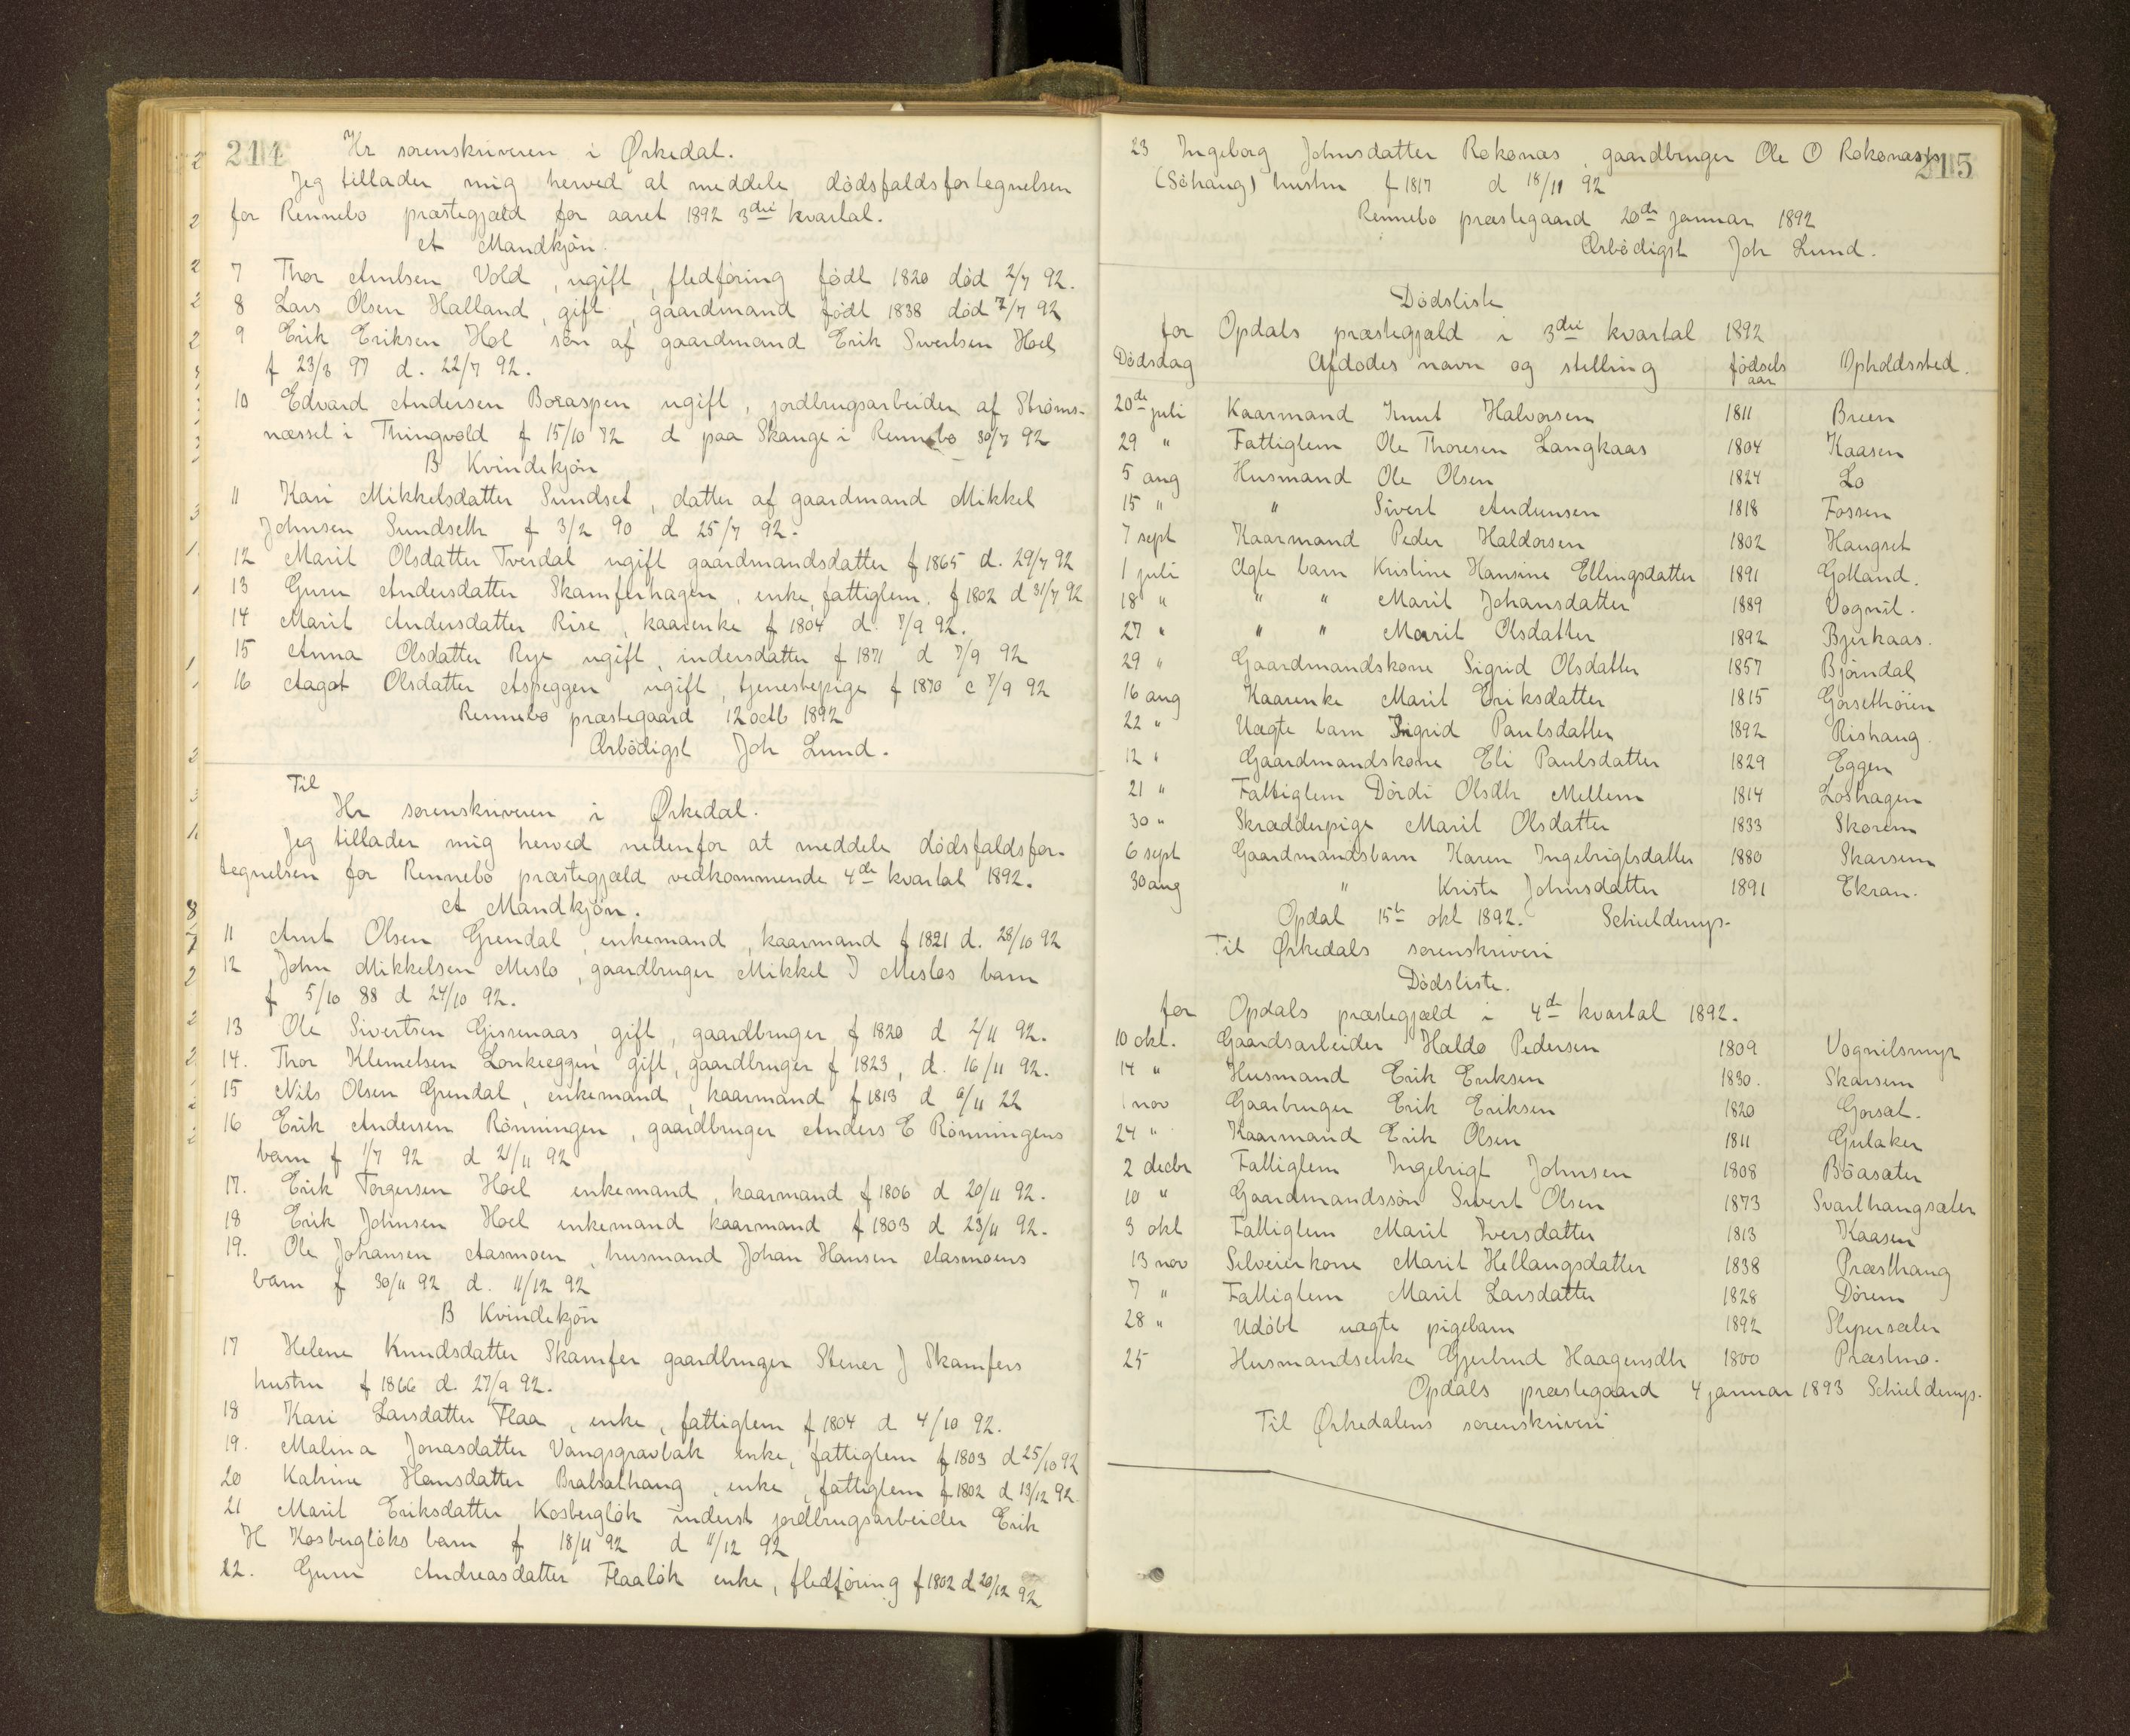 214
Hr sorenskriveren i Ørkedal.
Jeg tillader mig herved at meddele dödsfaldsfortegnelsen
for Rennebo præstegjæld for aaret 1892 3die kvartal.
A Mandkjön.
7 Thor Arntsen Vold, ugift, fledföring födt 1820 död 2/7 92.
8 Lars Olsen Halland, gift, gaardmand födt 1838 död 7/7 92
9 Erik Eriksen Hol sön af gaardmand Erik Sivertsen Hoel
f 23/3 97 d. 22/7 92.
10 Edvard Andersen Boraspen ugift, jordbrugsarbeider af Ströms-
næsset i Thingvold f 15/10 72 d paa Skauge i Rennebo 30/7 92
B Kvindekjön
11 Kari Mikkelsdatter Sundset, datter af gaardmand Mikkel
Johnsen Sundseth f 3/2 90 d 25/7 92.
12 Marit Olsdatter Tverdal ugift gaardmandsdatter f 1865 d. 29/7 92
13 Guru Andersdatter Skamferhagen, enke, fattiglem. f 1802 d 31/7 92
14 Marit Andersdatter Rise, kaarenke f 1804 d. 7/9 92.
15 Anna Olsdatter Rye ugift, indersdatter f 1871 d 7/9 92
16 Aagot Olsdatter Aspeggen ugift, tjenestepige f 1870 c 7/9 92
Rennebo præstegaard 12 octb 1892
Ærbödigst Joh Lund.
Til
Hr sorenskriveren i Ørkedal.
Jeg tillader mig herved nedenfor at meddele dödsfaldsfor-
tegnelsen for Rennebö præstegjæld vedkommende 4de kvartal 1892.
A Mandkjön.
11 Arnt Olsen Grendal, enkemand, kaarmand f 1821 d. 28/10 92
12 John Mikkelsen Meslo, gaardbruger Mikkel J Meslos barn
f 5/10 88 d 24/10 92.
13 Ole Sivertsen Gisrenaas, gift, gaardbruger f 1820 d 2/11 92.
14. Thor Klemetsen Lonkeeggen gift, gaardbruger f 1823, d. 16/11 92.
15 Nils Olsen Grendal, enkemand, kaarmand f 1813 d 6/11 22
16 Erik Andersen Rönningen, gaardbruger Anders E Rönningens
barn f 1/7 92 d 21/11 92
17. Erik Torgersen Hoel enkemand, kaarmand f 1806 d 20/11 92.
18 Erik Johnsen Hoel enkemand kaarmand f 1803 d 23/11 92.
19. Ole Johansen Aasmoen, husmand Johan Hansen Aasmoens
barn f 30/11 92 d. 11/12 92
B Kvindekjön
17 Helene Knudsdatter Skamfer gaardbruger Stener J Skamfers
hustru f 1866 d. 27/9 92.
18 Kari Larsdatter Flaa, enke, fattiglem f 1804 d 4/10 92.
19. Malina Jonasdatter Vangsgravbak enke, fattiglem f 1803 d 25/10 92
20 Katrine Hansdatter Bralsathaug, enke, fattiglem f 1802 d 13/12 92.
21 Marit Eriksdatter Kosberglök inderst jordbrugsarbeider Erik
H Kosberglöks barn f 18/11 92 d 11/12 92
22. Guru Andreasdatter Flaalök enke, fledföring f 1802 d 20/12 92
215
23 Ingeborg Johnsdatter Rokönæs, gaardbruger Ole O Rokönæss
(Söhaug) hustru f 1817 d 18/11 92
Rennebo præstegaard 20de januar 1892
Ærbödigst Joh Lund.
Dödsliste
for Opdals præstegjæld i 3die kvartal 1892
Dödsdag Afdödes navn og stilling födsels aar Opholdssted.
20de juli Kaarmand Knut Halvorsen 1811 Breen
29 " Fattiglem Ole Thoresen Langkaas 1804 Kaasen
5 aug Husmand Ole Olsen 1824 Lo
15 " " Sivert Audunsen 1818 Fossen
7 sept Kaarmand Peder Haldorsen 1802 Haugset
1 juli Ægte barn Kristine Hansine Ellingsdatter 1891 Gotland.
18 " " " Marit Johansdatter 1889 Vognil.
27 " " " Marit Olsdatter 1892 Bjerkaas.
29 " Gaardmandskone Sigrid Olsdatter 1857 Björndal
16 aug Kaarenke Marit Eriksdatter 1815 Gorsethöien
22 " Uægte barn Ingrid Paulsdatter 1892 Rishaug
12 " Gaardmandskone Eli Paulsdatter 1829 Eggen
21 " Fattiglem Dördi Olsdtr Mellem 1814 Loshagen
30 " Skrædderpige Marit Olsdatter 1833 Skorem
6 sept Gaardmandsbarn Karen Ingebrigtsdatter 1880 Skarsem
30 aug " Kristi Johnsdatter 1891 Ekran.
Opdal 15de okt 1892. Schielderup.
Til Ørkedals sorenskriveri
Dödsliste.
for Opdals præstegjæld i 4de kvartal 1892.
10 okt. Gaardsarbeider Haldo Pedersen 1809 Vognilsmyr
14 " Husmand Erik Eriksen 1830. Skarsem
1 nov Gaarbruger Erik Eriksen 1820 Gorsæt.
24 " Kaarmand Erik Olsen 1811 Gulaker
2 decbr Fattiglem Ingebrigt Johnsen 1808 Böasæter
10 " Gaardmandssön Sivert Olsen 1873 Svarthaugsæter
3 okt Fattiglem Marit Iversdatter 1813 Kaasen
13 nov Selveierkone Marit Hellaugsdatter 1838 Præsthaug
7 " Fattiglem Marit Larsdatter 1828 Dörem
28 " Udöbt uægte pigebarn 1892 Slipersæter
25 Husmandsenke Gjertrud Haagensdtr 1800 Præstmo.
Opdals præstegaard 4 januar 1893 Schielderup.
Til Ørkedalens sorenskriveri